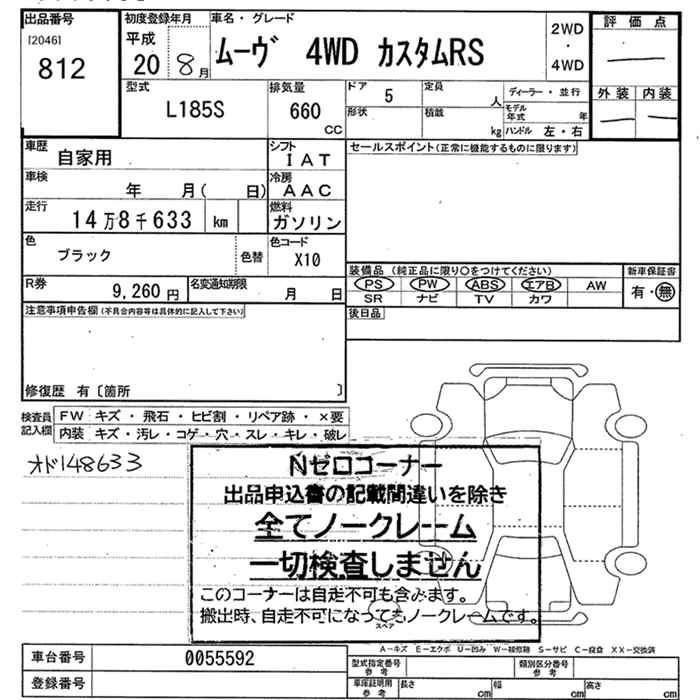 出品番号
[2046]
812
初度登録年月
平成
20 8月
車名・グレード
ムーヴ 4WD カスタムRS
2WD
・
4WD
評価点
外装 内装
型式
L185S
排気量
660
CC
ドア 5
定員
人
形状
積載
kg
ディーラー・並行
モデル年式 年
ハンドル 左・右
車歴
自家用
シフト
IAT
セールスポイント(正常に機能するものに限ります)
車検
年 月( 日)
冷房
AAC
走行
14万8千633 km
燃料
ガソリン
色
ブラック
色替
色コード
X10
装備品 (純正品に限り○をつけてください)
PS PW ABS エアB AW
SR ナビ TV カワ
新車保証書
有・無
R券
9,260 円
名変通知期限
月 日
後日品
注意事項申告欄(不具合内容等は具体的に記入して下さい)
修復歴 有〔箇所 〕
検査員
記入欄
FW キズ・飛石・ヒビ割・リペア跡・×要
内装 キズ・汚レ・コゲ・穴・スレ・キレ・破レ
オド148633
Nゼロコーナー
出品申込書の記載間違いを除き
全てノークレーム
一切検査しません
このコーナーは自走不可も含みます。
搬出時、自走不可になってもノークレームです。
スペア
A-キズ E-エクボ U-凹み W-補修跡 S-サビ C-腐食 XX-交換済
車台番号
0055592
登録番号
型式指定番号
参考
類別区分番号
参考
車庫証明用
参考
長さ cm
幅 cm
高さ cm